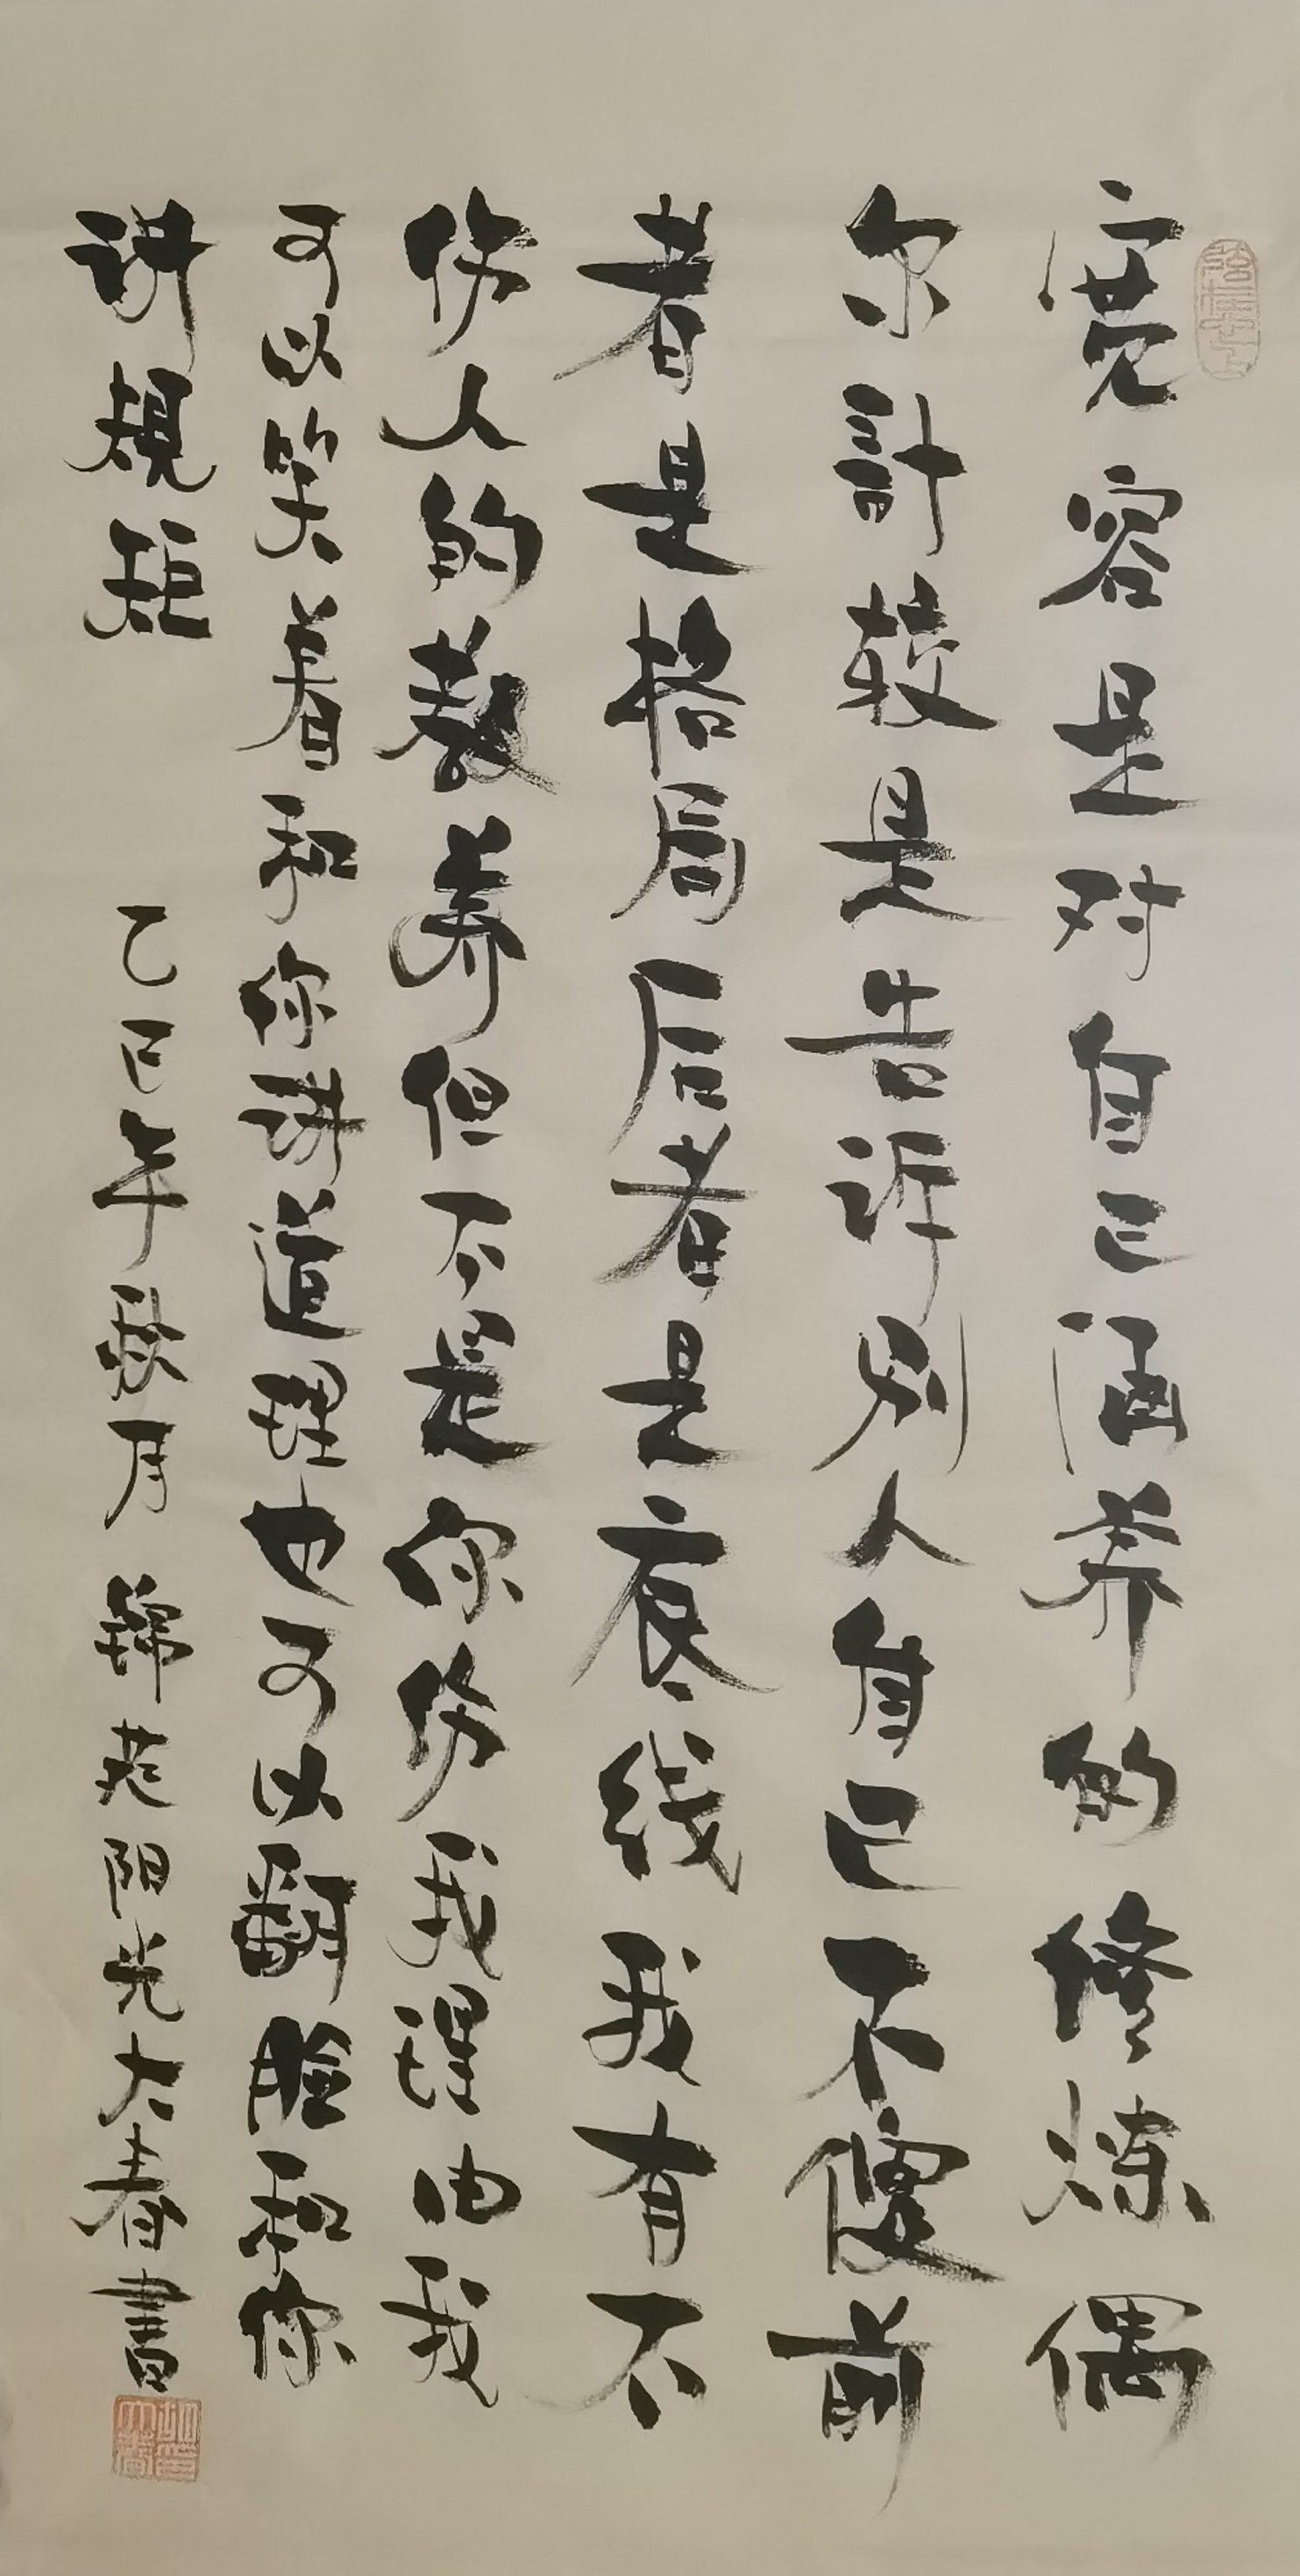 宽容是对自己涵养的修炼偶
尔計较是告诉别人自己不傻前
者是格局后者是底线我有不
伤人的教养但不是你伤我理由我
可以笑着和你讲道理也可以翻脸和你
讲規矩
乙巳年秋月 锦苑阳光大春書